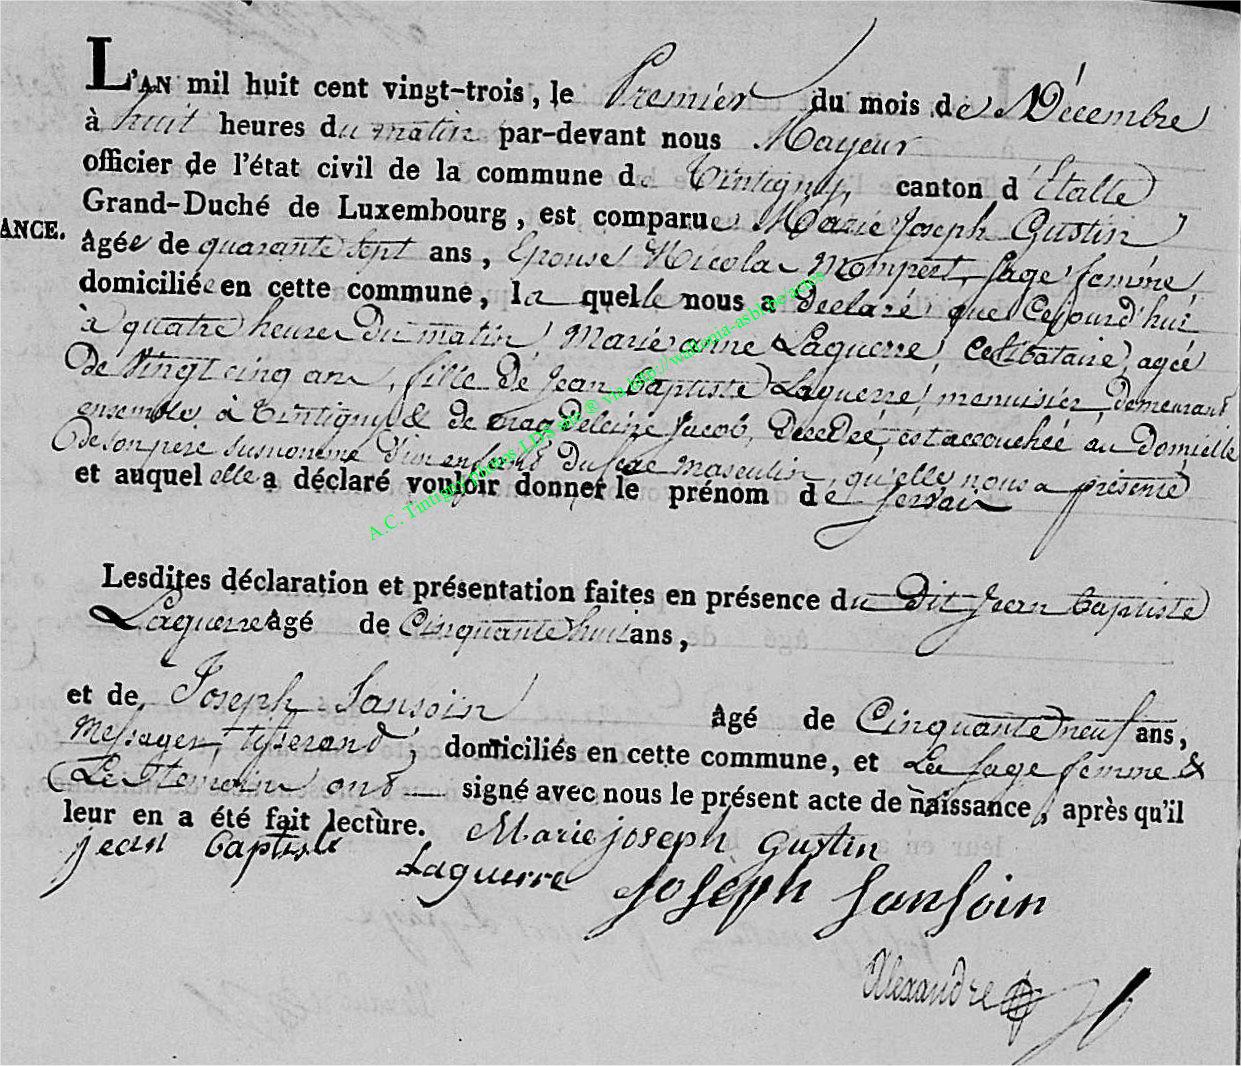 L'AN mil huit cent vingt-trois, le Premier du mois de Décembre
à huit heures du matin par-devant nous Mayeur
officier de l'état civil de la commune de Tintigny, canton d'Etalle
Grand-Duché de Luxembourg, est comparue Marie Joseph Gustin
ANCE.
âgée de quarante sept ans, Epouse Nicolas Mompert, sage femme
domiciliée en cette commune, la quelle nous a déclaré que Cejourd'hui
à quatre heures du matin Marie anne Laguerre, Celibataire, agée
De Vingt cinq ans, fille De Jean Baptiste Laguerre, menuisier, demeurant
ensemble à Tintigny & de magdeleine Jacob, Decedée, est accouchée au Domicile
De son père susnommé d'un enfant Du sexe masculin, qu'elle nous a présenté
et auquel elle a déclaré vouloir donner le prénom de Servais
A.C. Tintigny photos LDS asbl ® via http://wallonia-asbl.be/actes
Lesdites déclaration et présentation faites en présence du Dit Jean Baptiste
Laguerre âgé de Cinquante huit ans,
et de Joseph Sansoin âgé de Cinquante neuf ans,
Messager, tisserand, domiciliés en cette commune, et La sage femme &
Les témoins ont signé avec nous le présent acte de naissance, après qu'il
leur en a été fait lecture. Marie joseph gustin
jean baptiste Laguerre joseph sansoin
Alexandre